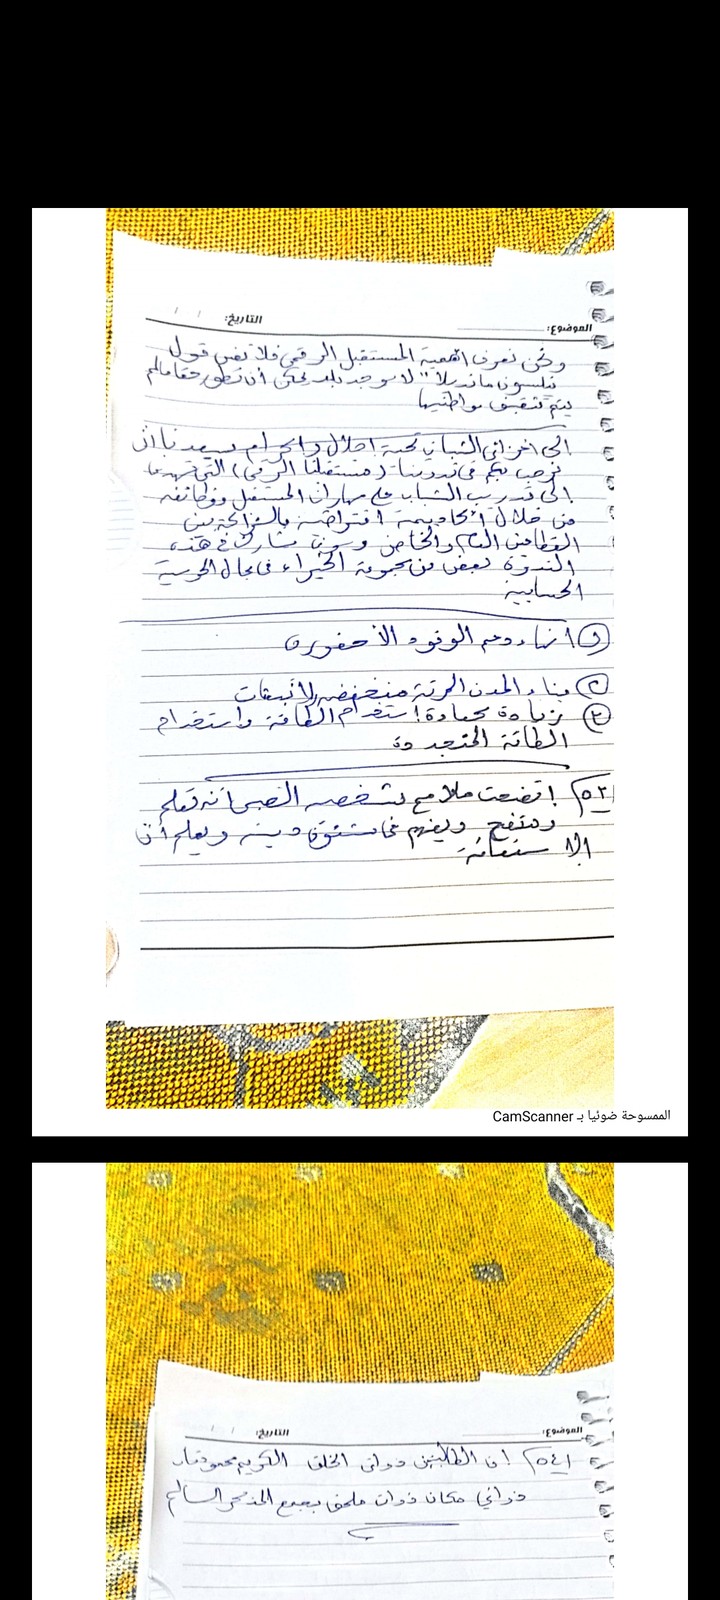 الموضوع: التاريخ: / /
ونحن نعرف اهمية المستقبل الرقمي فلا ننسى قول
نيلسون مانديلا " لا يوجد بلد يمكن أن تطور حقا مالم
يتم تثقيف مواطنيها
الى اخواني الشباب تحية اجلال واحترام يسعدنا ان
نرحب بكم في ندوتنا (مستقبلنا الرقمي) التي تهدف
الى تدريب الشباب على مهارات المستقبل ووظائفه
من خلال اكاديمية افتراضية بالشراكة بين
القطاعين العام والخاص وسوف تشارك في هذه
الندوة بعض من مجموعة الخبراء في مجال الحوسبة
الحسابية
① انهاء دعم الوقود الأحفوري
② بناء المدن المرنة منخفضه الانبعاث
③ زيادة كفاءة استخدام الطاقة واستخدام
الطاقة المتجددة
٥٣) اتضحت ملامح شخصيه الصبي أنه تعلم
ومتفتح ويفهم في شئون دينه ويعلم أن
الاستعانة
الممسوحة ضوئيا بـ CamScanner
الموضوع: التاريخ: / /
٥٤) ان الطالبتين ذواتي الخلق الكريم
ذواتي مكان ذوات ملحق بجمع المذكر السالم